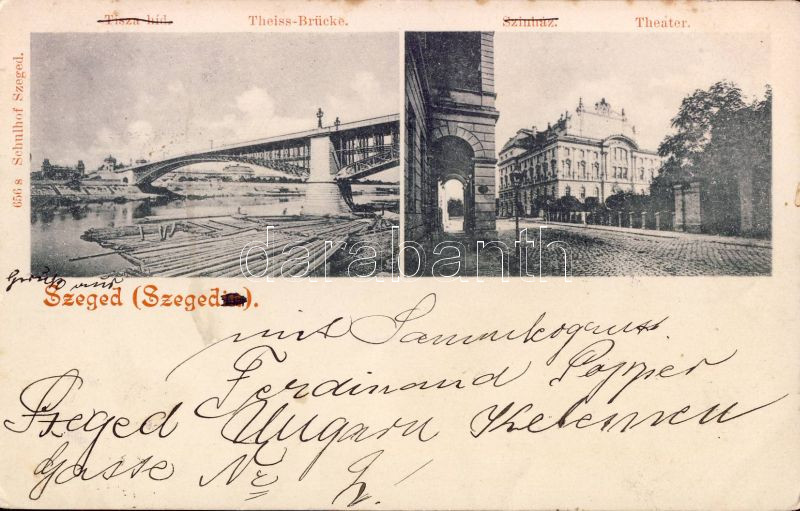 Tisza híd. Theiss-Brücke. Szinház. Theater.
656 s Schulhof Szeged.
darabanth
Gruß aus
Szeged (Szegedin).
mit Sammkogruss
Ferdinand Popper
Szeged Ungarn Kelemen
Gasse Nr 4